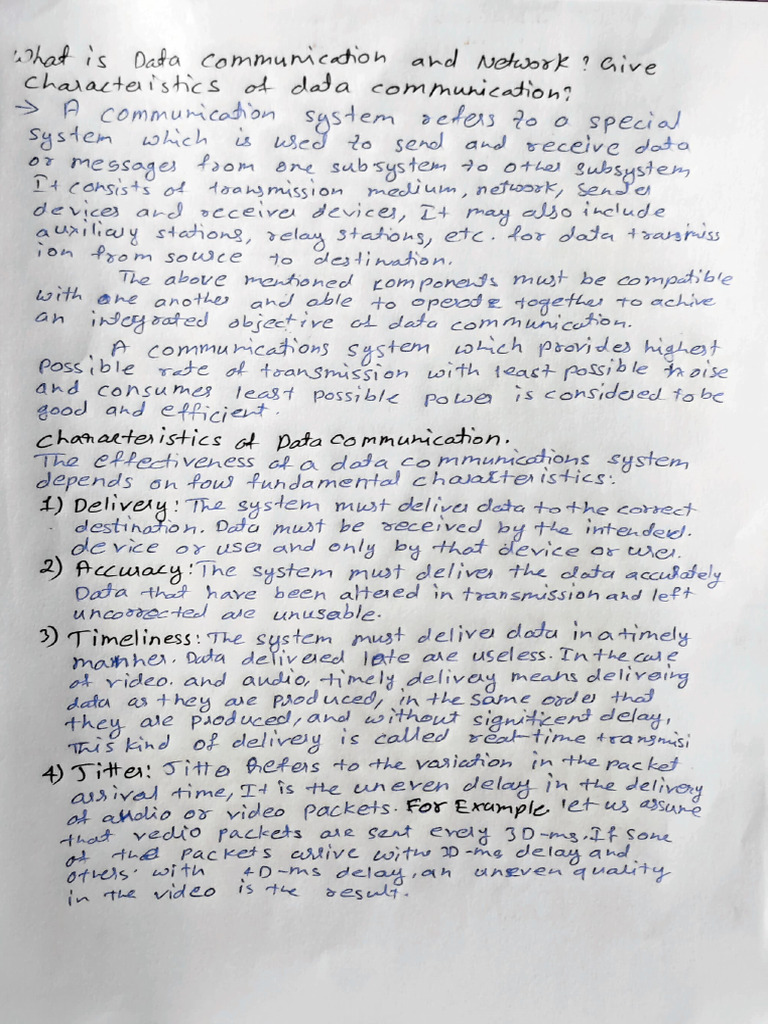 What is Data communication and Network? Give
characteristics of data communication?
→ A communication system refers to a special
system which is used to send and receive data
or messages from one subsystem to other subsystem
It consists of transmission medium, network, Sender
devices and receiver devices, It may also include
auxiliary stations, relay stations, etc. for data transmiss
ion from source to destination.
The above mentioned components must be compatible
with one another and able to operate together to achive
an integrated objective of data communication.
A communications system which provides highest
possible rate of transmission with least possible noise
and consumes least possible power is considered to be
good and efficient.
Characteristics of Data Communication.
The effectiveness of a data communications system
depends on four fundamental characteristics:
1) Delivery: The system must deliver data to the correct
destination. Data must be received by the intended.
device or user and only by that device or user.
2) Accuracy: The system must deliver the data accurately
Data that have been altered in transmission and left
uncorrected are unusable.
3) Timeliness: The system must deliver data in a timely
manner. Data delivered late are useless. In the case
of video. and audio, timely delivery means delivering
data as they are produced, in the same order that
they are produced, and without significent delay,
This kind of delivery is called real-time transmisi
4) Jitter: Jitter Refers to the variation in the packet
arrival time, It is the uneven delay in the delivery
of audio or video packets. For Example let us assume
that vedio packets are sent every 3D-ms. If some
of the packets arrive with 3D-ms delay and
others with 4D-ms delay, an uneven quality
in the video is the result.